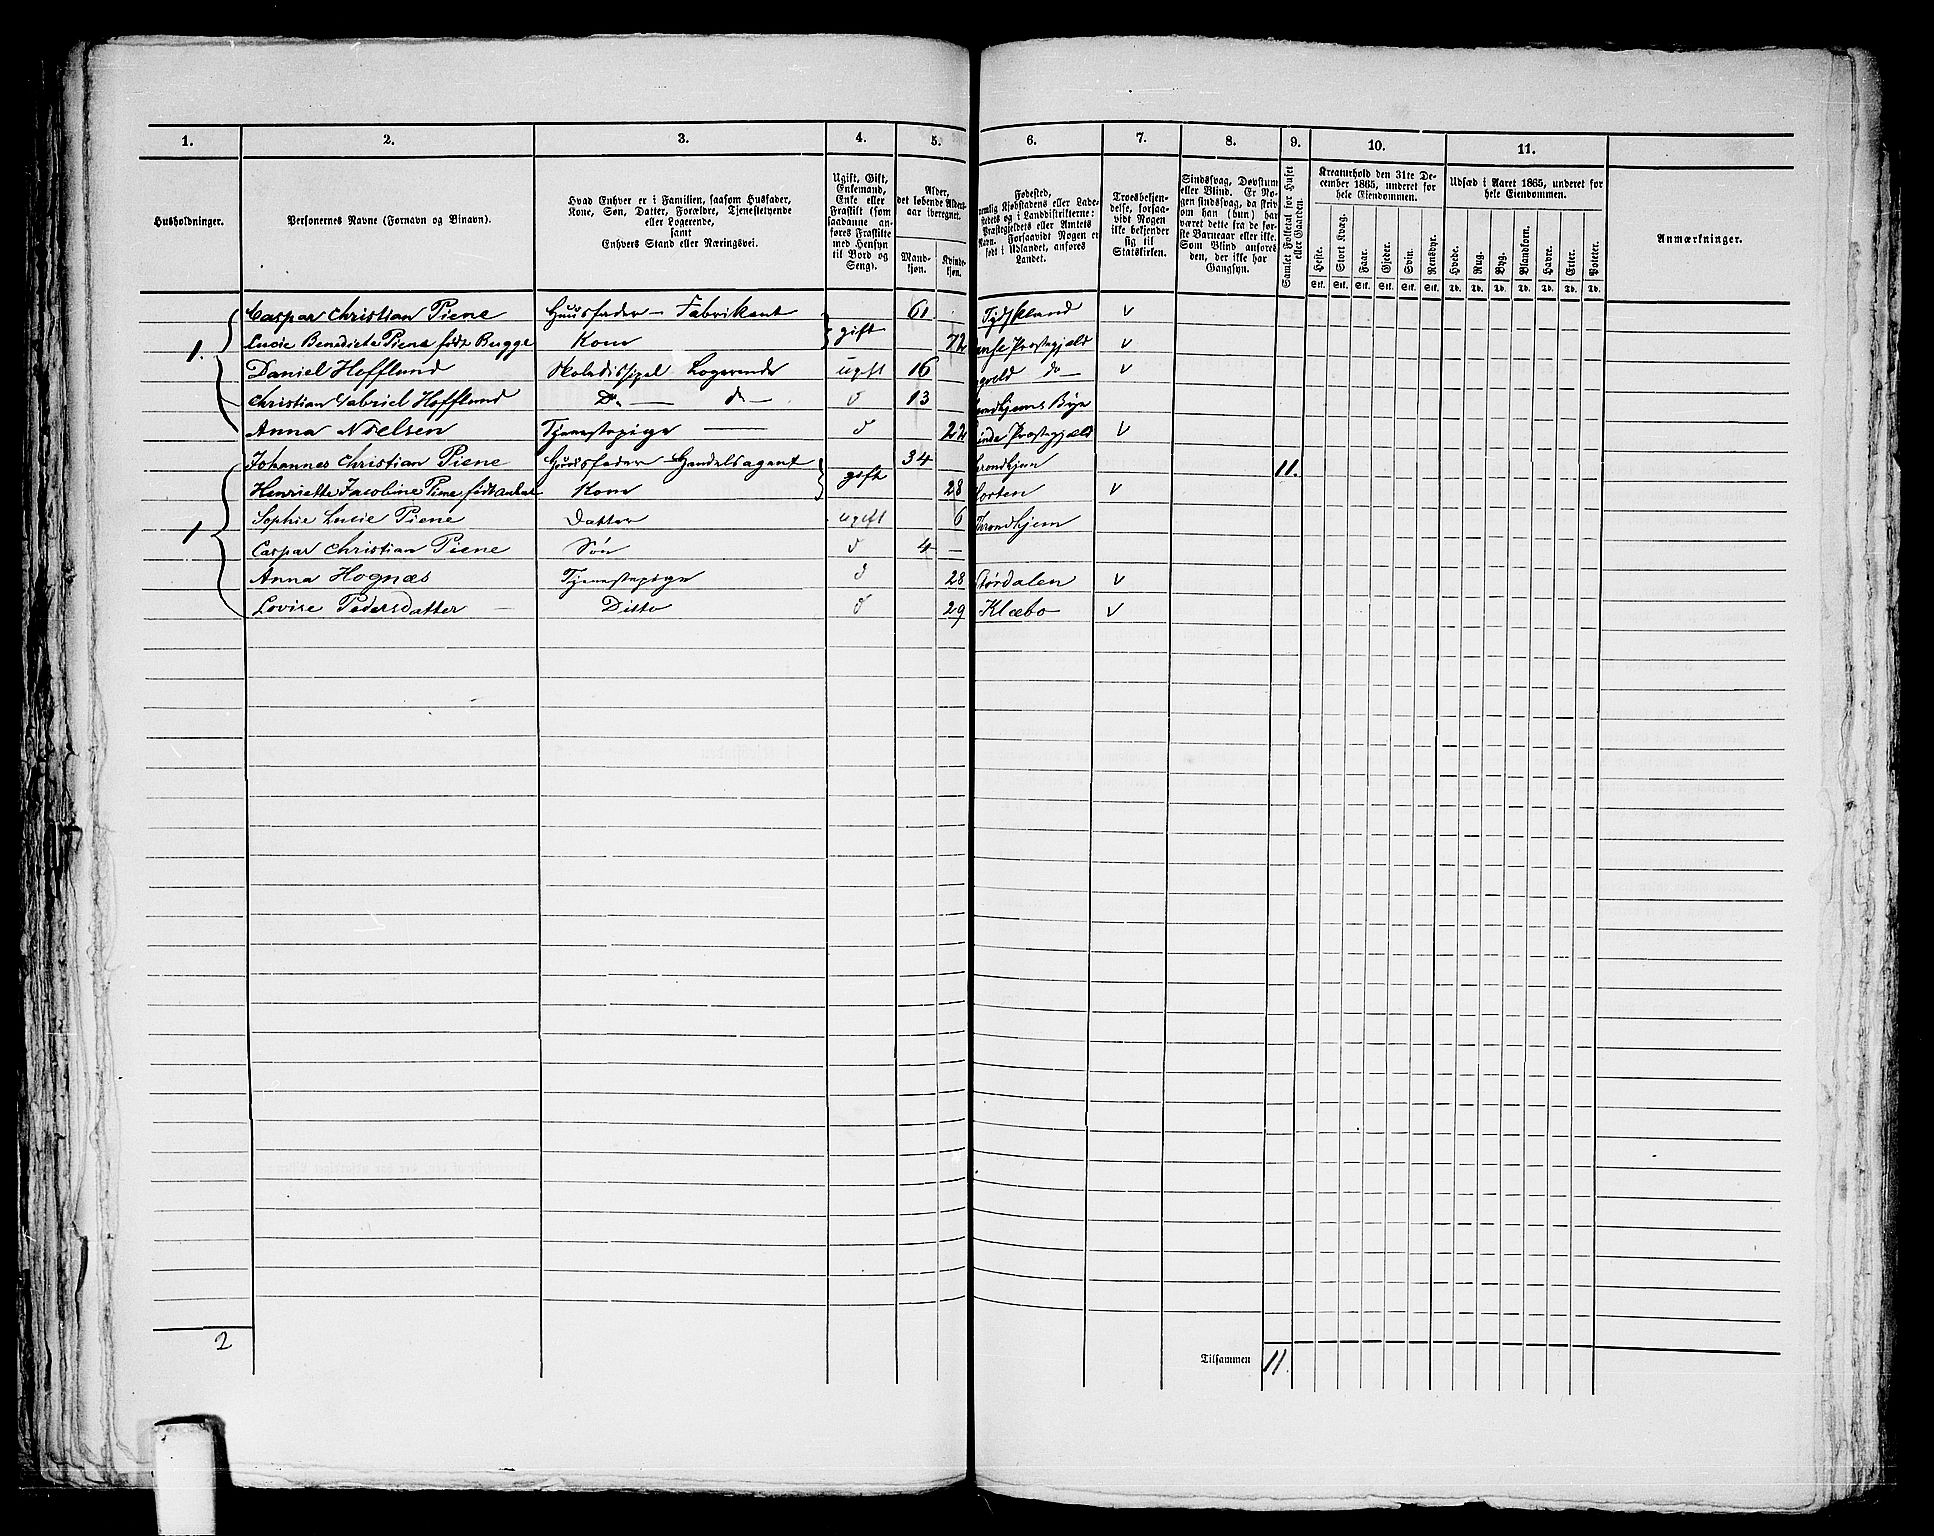 1. 2. 3. 4. 5. 6. 7. 8. 9. 10. 11.
Husholdninger.
Personernes Navne (Fornavn og Binavn).
Hvad Enhver er i Familien, saasom Husfader,
Kone, Søn, Datter, Forældre, Tjenestetyende
eller Logerende,
samt
Enhvers Stand eller Næringsvei.
Ugift, Gift,
Enkemand,
Enke eller
Fraskilt (som
saadanne an-
føres Fraskilte
med Hensyn
til Bord og
Seng).
Alder,
det løbende Alders-
aar iberegnet.
Mand-
kjøn.
Kvinde-
kjøn.
Fødested,
nemlig Kjøbstadens eller Lade-
stedets og i Landdistrikterne:
Præstegjeldets eller Amtets
Navn. Forsaavidt Nogen er
født i Udlandet, anføres
Landet.
Troesbekjen-
delse, forsaa-
vidt Nogen
ikke bekjender
sig til
Statskirken.
Sindssvag, Døvstum
eller Blind. Er No-
gen sindssvag, da skriv
om han (hun) har
været dette fra de før-
ste Barneaar eller ikke.
Som Blind anføres
den, der ikke har
Gangsyn.
Samlet Folketal for Huset
eller Gaarden.
Kreaturhold den 31te De-
cember 1865, underet for
hele Eiendommen.
Heste. Stort Kvæg. Faar. Gjeder. Svin. Rensdyr.
Stk. Stk. Stk. Stk. Stk. Stk.
Udsæd i Aaret 1865, underet for
hele Eiendommen.
Hvede. Rug. Byg. Blandkorn. Havre. Erter. Poteter.
Td. Td. Td. Td. Td. Td. Td.
Anmærkninger.
Caspar Christian Piene Huusfader - Fabrikant 61 . Tydskland v
1. Lucie Benedicte Piene født Bugge Kone gift 72 Præstegjæld v
Daniel Hofflund Skoledissipel Logerende ugift 16 do v
Christian Gabriel Hofflund Do do d 13 Bye
Anna Nielsen Tjenestepige d 22 Præstegjæld v
Johannes Christian Piene Huusfader - Handelsagent 34 Trondhjem 11.
Henriette Jacobine Piene født Kone gift 28 Horten v
1 Sophie Lucie Piene Datter ugift 6 Throndhjem
Caspar Christian Piene Søn d 4 -
Anna Hognæs Tjenestepige d 28 Størdalen v
Lovise Pedersdatter Ditto d 29 Klæbo v
2
Tilsammen 11.